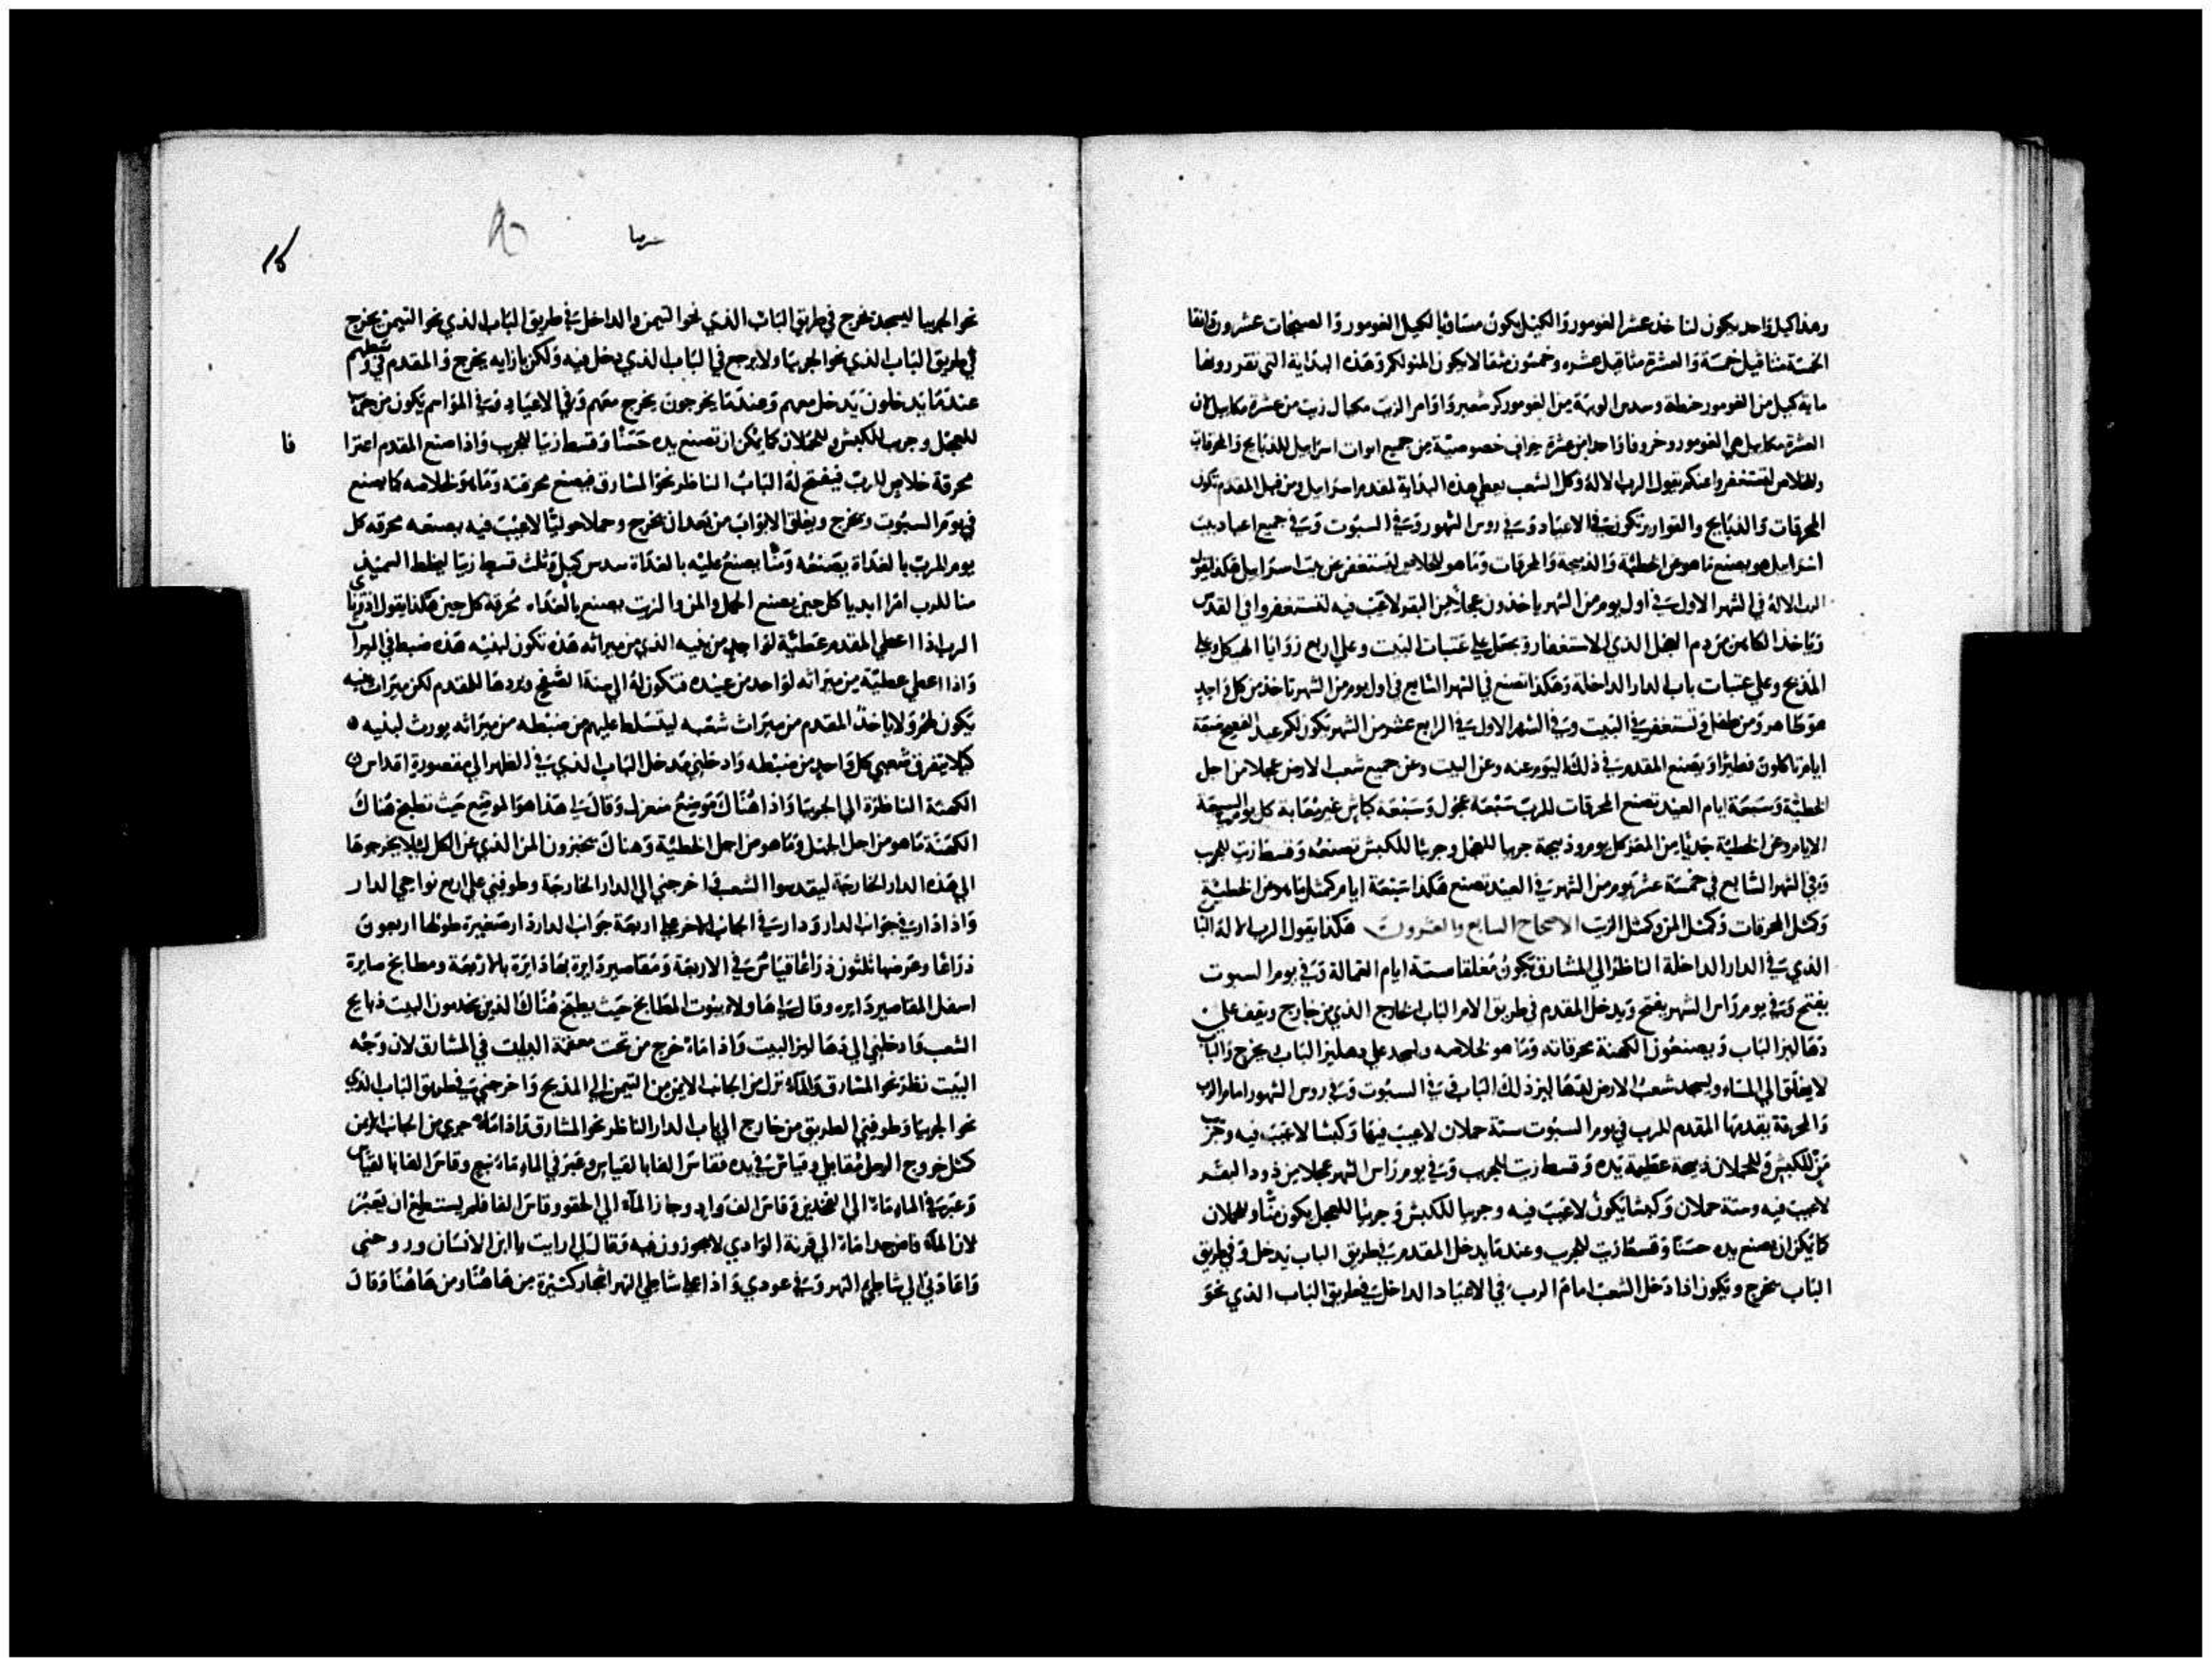 وهذا كيل واحد يكون لنا خذ عشر الغومور والكيل يكون مساويا لكيل الغومور والصبخات عشرون دانقا
الخمسة مثاقيل خمسة والعشرة مثاقيل عشره وخمسون مثقالا يكون المنو لكم وهذه البداية التي تقدرونها
العشرة مكاييل هي الغومور وخروفا واحدا من عشرة خراف خصوصية من جميع ابوات اسراييل للذبايح والمحرقات
وللخلاص لتستغفروا عنكم يقول الرب الاله وكل الشعب يعطي هذه البداية لمقدم اسراييل ومن قبل المقدم تكون
المحرقات والذبايح والقوارير تكون في الاعياد وفي روس الشهور وفي السبوت وفي جميع اعياد بيت
اسراييل هو يصنع ما هو عن الخطية والذبيحة والمحرقات وما هو للخلاص لتستغفر عن بيت اسراييل هكذا يقول
الرب الاله في الشهر الاول في اول يوم من الشهر ياخذون عجلا من البقر لا عيب فيه لتستغفروا في القدس
وياخذ الكاهن من دم العجل الذي للاستغفار ويجعل علي عتبات البيت وعلي اربع زوايا الهيكل وعلي
المذبح وعلي عتبات باب الدار الداخلة وهكذا تصنع في الشهر السابع في اول يوم من الشهر تاخذ من كل واحد
وتستغفر في البيت وفي الشهر الاول في الرابع عشر من الشهر تكون لكم عيد الفصح سبعة
ايام تاكلون فطيرا ويصنع المقدم في ذلك اليوم عنه وعن البيت وعن جميع شعب الارض عجلا من اجل
الخطية وسبعة ايام العيد تصنع المحرقات للرب سبعة عجول وسبعة كباش غير معابة كل يوم السبعة
الايام وعن الخطية جديا من المعز كل يوم وذبيحة جريبا للعجل وجريبا للكبش تصنعه وقسط زيت للجريب
وفي الشهر السابع في خمسة عشر يوم من الشهر في العيد تصنع هكذا سبعة ايام كمثل ما هو عن الخطية
وكمثل المحرقات وكمثل المن وكمثل الزيت الاصحاح السابع والعشرون هكذا يقول الرب الاله الباب
الذي في الدار الداخلة الناظر الي المشارق يكون مغلقا ستة ايام العمالة وفي يوم السبوت
يفتح وفي يوم راس الشهر يفتح ويدخل المقدم في طريق الباب الخارج الذي من خارج ويقف علي
دهاليز الباب ويصنعون الكهنة محرقاته وما هو لخلاصه ويسجد علي دهليز الباب ويخرج والباب
لا يغلق الي المساء ويسجد شعب الارض لدهاليز ذلك الباب في السبوت وفي روس الشهور امام الرب
والمحرقة يقدمها المقدم للرب في يوم السبوت ستة حملان لا عيب فيها وكبشا لا عيب فيه وجريب
من للكبش وللحملان ذبيحة عطية يده وقسط زيت للجريب وفي يوم راس الشهر عجلا من ذود البقر
لا عيب فيه وستة حملان وكبشا يكون لا عيب فيه وجريبا للكبش وجريبا للعجل يكون منا وللحملان
كما يمكن ان يصنع يده حسنا وقسط زيت للجريب وعندما يدخل المقدم في طريق الباب يدخل وفي طريق
الباب يخرج ويكون اذا دخل الشعب امام الرب في الاعياد الداخل في طريق الباب الذي نحو
نحو الجربيا ليسجد يخرج في طريق الباب الذي نحو التيمن والداخل في طريق الباب الذي نحو التيمن يخرج
في طريق الباب الذي نحو الجربيا ولا يرجع في الباب الذي دخل فيه ولكن بازايه يخرج والمقدم في وسطهم
عندما يدخلون يدخل معهم وعندما يخرجون يخرج معهم وفي الاعياد وفي المواسم يكون من جريب
للعجل وجريب للكبش وللحملان كما يمكن ان تصنع يده حسنا وقسط زيتا للجريب واذا صنع المقدم اعترا
محرقة خلاص للرب فيفتح له الباب الناظر نحو المشارق فيصنع محرقته وما هو لخلاصه كما يصنع
في يوم السبوت ويخرج ويغلق الابواب من بعد ان يخرج وحملا حوليا لا عيب فيه يصنعه محرقه كل
يوم للرب بالغداة يصنعه ومنا يصنع عليه بالغداة سدس كيل وثلث قسط زيتا ليخلط السميد
منا للرب امرا ابديا كل حين يصنع الحمل والمن والزيت يصنع بالغداه محرقة كل حين هكذا يقول ادوناي
الرب اذا اعطي المقدم عطية لواحد من بنيه الذي من ميراثه هذه تكون لبنيه هذه ضبط في الميراث
واذا اعطي عطية من ميراثه لواحد من عبيده فتكون له الي سنة الصفح ويردها للمقدم لكن ميراث بنيه
يكون لهم ولا ياخذ المقدم من ميراث شعبه ليتسلط عليهم من ضبطه من ميراثه يورث لبنيه
كيلا يتفرق شعبي كل واحد من ضبطه وادخلني مدخل الباب الذي في الظهر الي مقصورة اقداس
الكهنة الناظرة الي الجربيا واذا هناك موضع منعزل وقال لي هذا هو الموضع حيث تطبخ هناك
الكهنة ما هو من اجل الجهل وما هو من اجل الخطية وهناك يخبزون المن الذي عن الكل ليلا يخرجوها
الي هذه الدار الخارجة ليقدسوا الشعب فاخرجني الي الدار الخارجة وطوفني علي اربع نواحي الدار
واذا دار في جوانب الدار ودار في الجانب الاخر علي اربعة جوانب الدار دار صغيرة طولها اربعون
ذراعا وعرضها ثلثون ذراعا قياس في الاربعة ومقاصير دايرة بها دايرة بالاربعة ومطابخ صايرة
اسفل المقاصير دايره وقال لي هاولاء بيوت المطابخ حيث يطبخ هناك الذين يخدمون البيت ذبايح
الشعب وادخلني الي دهاليز البيت واذا ماء خرج من تحت البيت في المشارق لان وجه
البيت نظر نحو المشارق والماء نزل من الجانب الايمن من التيمن الي المذبح واخرجني في طريق الباب الذي
نحو الجربيا وطوفني الطريق من خارج الي باب الدار الناظر نحو المشارق واذا ماء جري من الجانب الايمن
كمثل خروج الرجل مقابل وقياس في يده فقاس الفا بالقياس وعبر في الماء ماء نبع وقاس الفا بالقياس
وعبر في الماء ماء الي الفخذين وقاس الف وادي وجاز الماء الي الحقو وقاس الفا فلم يستطع ان يعبر
لان الماء فاض جدا ماء الي قرنة الوادي لا يجوزون فيه وقال لي ارايت يا ابن الانسان وروحني
واعادني الي شاطي النهر وفي عودي واذا علي شاطي النهر اشجار كثيرة من هاهنا ومن هاهنا وقال